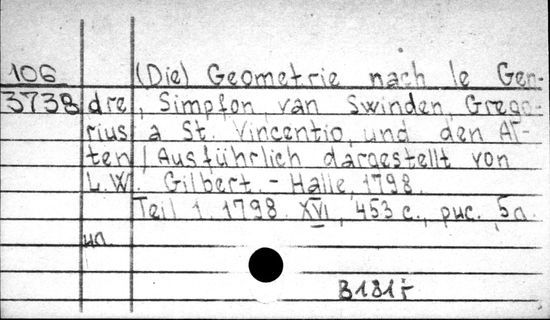 106 (Die) Geometrie nach le Gen-
3738 dre, Simpson, van Swinden, Grego-
rius a St. Vincentio, und den Al-
ten / Ausführlich dargestellt von
L.W. Gilbert. - Halle, 1798.
Teil 1. 1798. XVI, 453 с., рис., 5л.
ил.